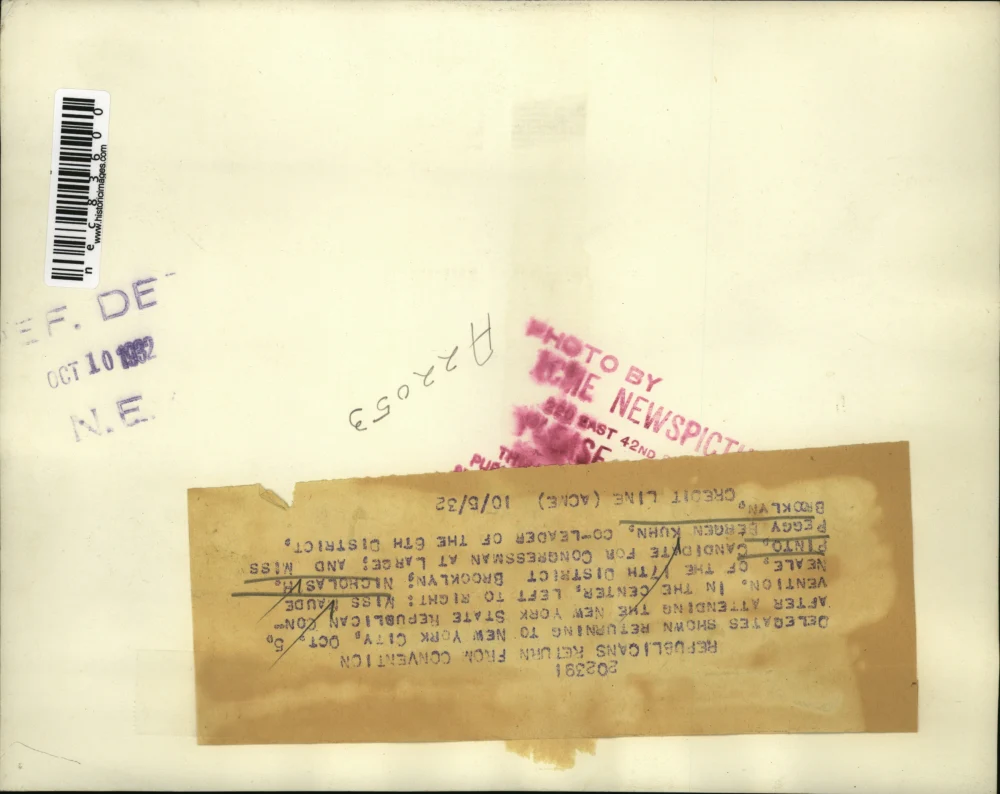 n e c 8 3 6 0 0
www.historicimages.com
EF. DE
OCT 10 1932
N.E.
A22053
PHOTO BY
ACME NEWSPICTU
220 EAST 42ND
202391
REPUBLICANS RETURN FROM CONVENTION
DELEGATES SHOWN RETURNING TO NEW YORK CITY, OCT. 5,
AFTER ATTENDING THE NEW YORK STATE REPUBLICAN CON-
VENTION. IN THE CENTER, LEFT TO RIGHT: MISS MAUDE
NEALE, OF THE 17TH DISTRICT BROOKLYN; NICHOLAS H.
PINTO, CANDIDATE FOR CONGRESSMAN AT LARGE; AND MISS
PEGGY BERGEN KUHN, CO-LEADER OF THE 6TH DISTRICT,
BROKLYN.
CREDIT LINE (ACME) 10/5/32